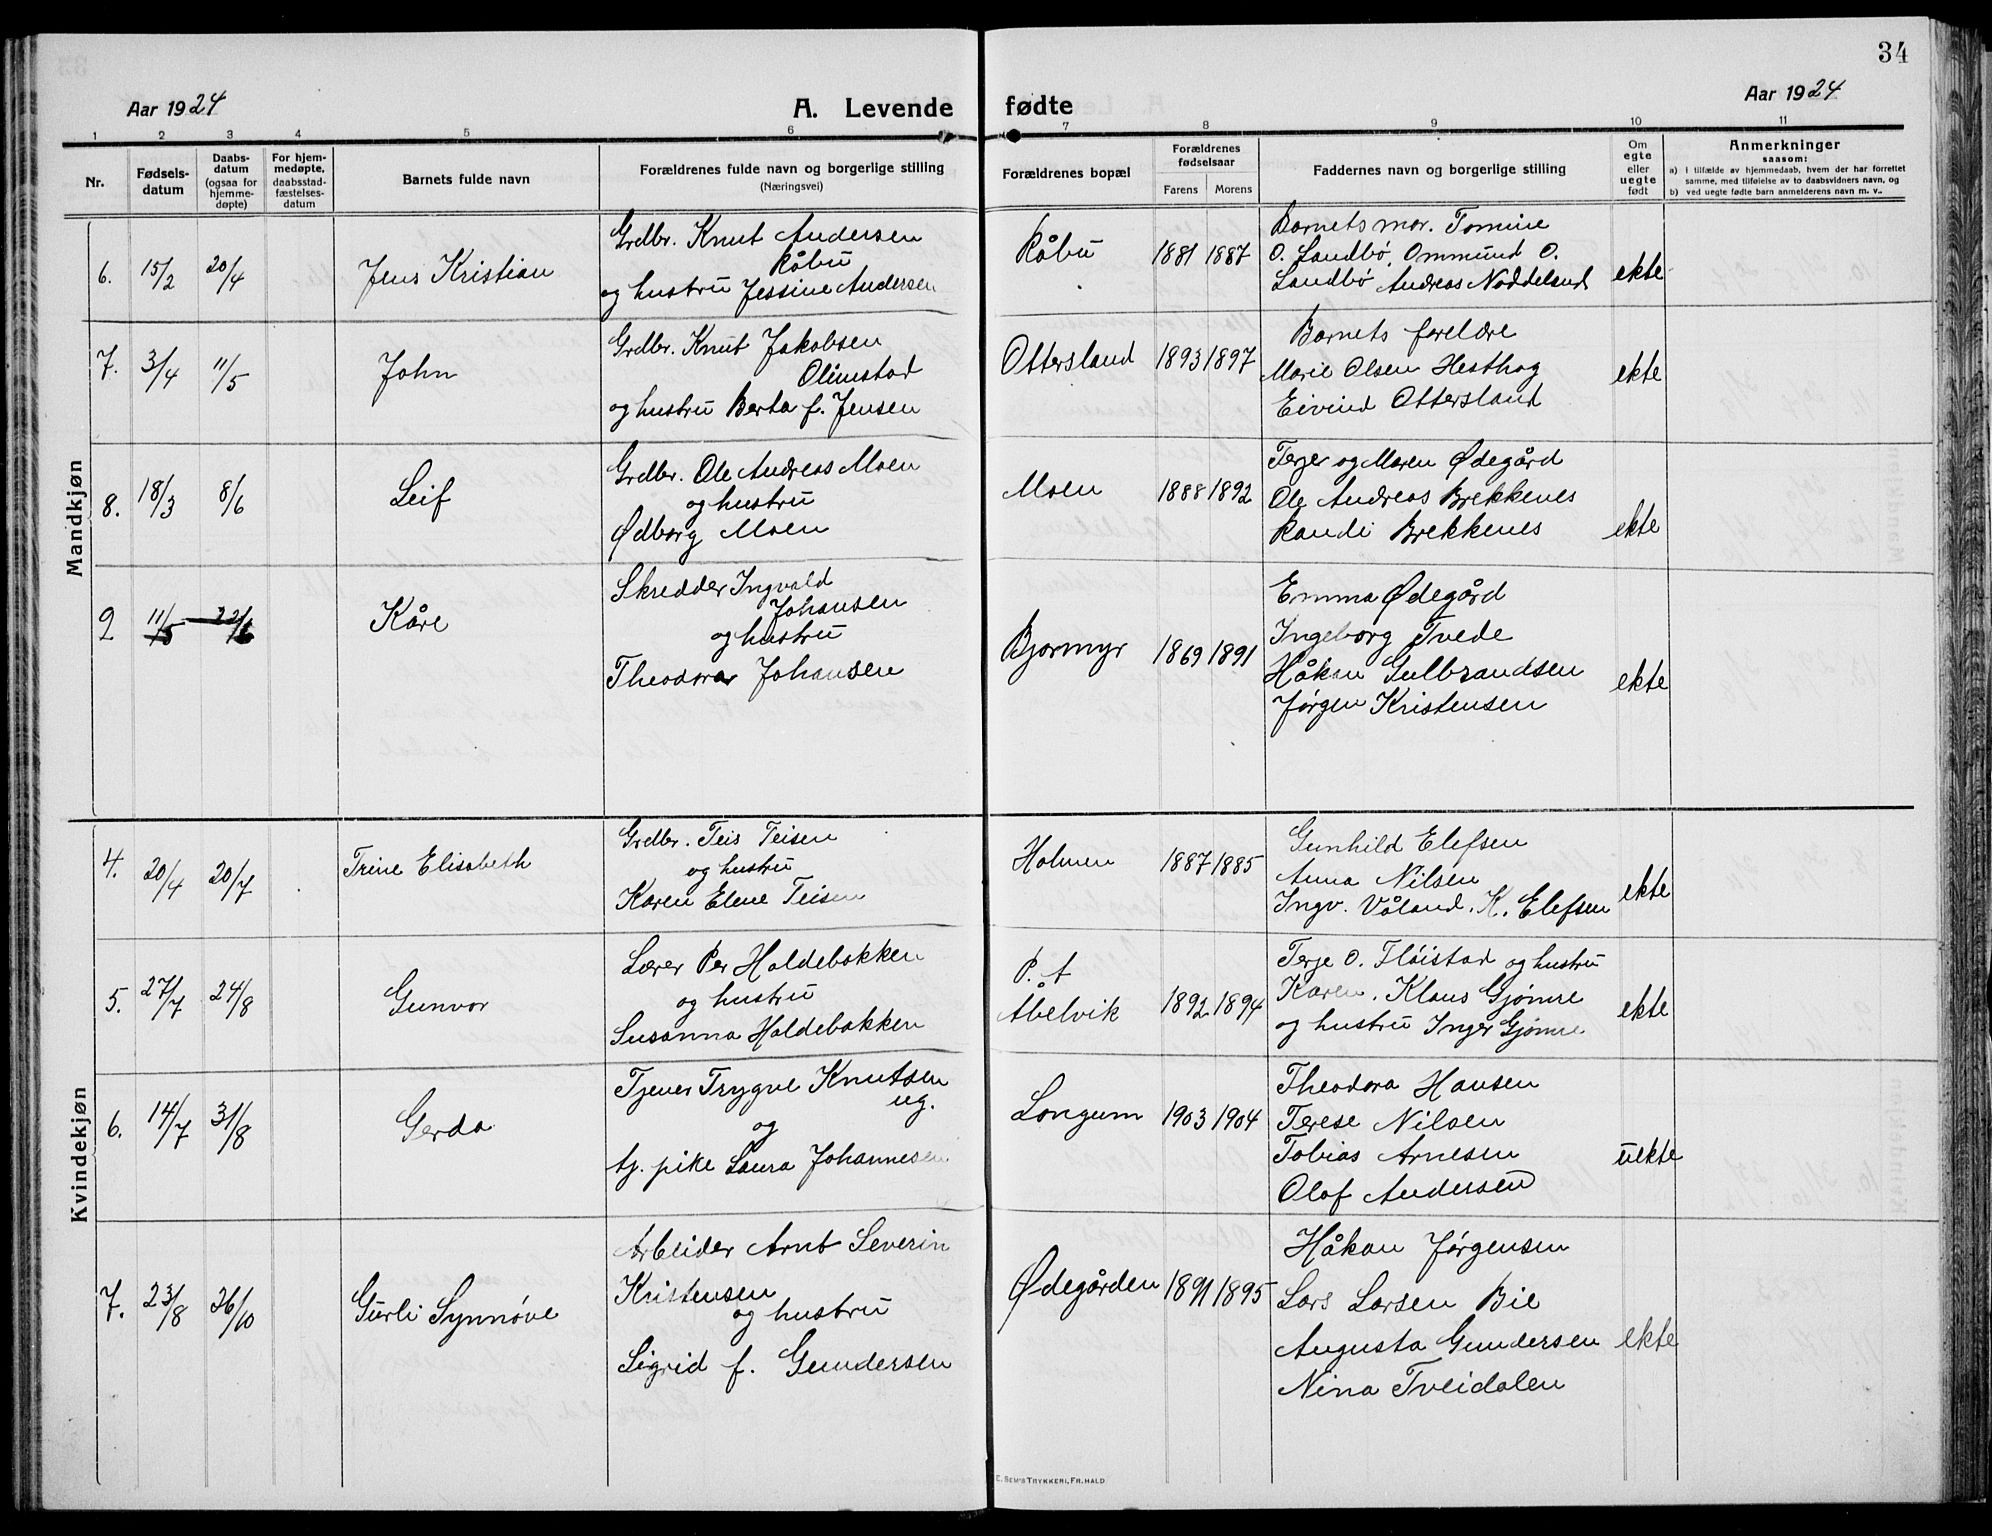 34
Aar 1924
A. Levende fødte
Aar 1924
1 2 3 4 5 6 7 8 9 10 11
Nr.
Fødsels-
datum
Daabs-
datum
(ogsaa for
hjemme-
døpte)
For hjem-
medøpte,
daabsstad-
fæstelses-
datum
Barnets fulde navn
Forældrenes fulde navn og borgerlige stilling
(Næringsvei)
Forældrenes bopæl
Forældrenes
fødselsaar
Farens Morens
Faddernes navn og borgerlige stilling
Om
egte
eller
uegte
født
Anmerkninger
saasom:
a) I tilfælde av hjemmedaab, hvem der har forrettet
samme, med tilføielse av to daabsvidners navn, og
b) ved uegte fødte barn anmelderens navn m. v..
Mandkjøn
6. 15/2 20/4 Jens Kristian
Grdbr. Knut Andersen
Råbu
og hustru Jessine Andersen
Råbu 1881 1887
Barnets mor. Tomine
O. Landbø, Ommund O.
Landbø Andreas Nøddeland
ekte
7. 3/4 11/5 John
Grdbr. Knut Jakobsen
Olimstad
og hustru Berta f. Jensen
Ottersland 1893 1897
Barnets forelære
Marie Olsen Hesthag
Eivind Ottersland
ekte
8. 18/3 8/6 Leif
Grdbr. Ole Andreas Moen
og hustru
Ødborg Moen
Moen 1888 1892
Terje og Maren Ødegård
Ole Andreas Brekkenes
Randi Brekkenes
ekte
9 11/5 22/6 Kåre
Skredder Ingvald
Johansen
og hustru
Theodora Johansen
Bjormyr 1869 1891
Emma Ødegård
Ingeborg Tvede
Håkan Gulbrandsen
Jørgen Kristensen
ekte
Kvindekjøn
4. 20/4 20/7 Trine Elisabeth
Grdbr. Teis Teisen
og hustru
Karen Elene Teisen
Holmen 1887 1885
Gunhild Elefsen
Anna Nilsen
Ingv. Våland, K. Elefsen
ekte
5. 27/7 24/8 Gunvor
Lærer Per Haldebakken
og hustru
Susanna Haldebakken
P. t
Åbelvik 1892 1894
Terje O. Fløistad og hustru
Karen, Klaus Gjømre
og hustru Inger Gjømre
ekte
6. 14/7 31/8 Gerda
Tjener Trygve Knutsen
ug.
og
tj. pike Laura Johannesen
Longum 1903 1904
Theodora Hansen
Terese Nilsen
Tobias Arnesen
Olaf Andersen
uekte
7. 23/8 26/10 Gurli Synnøve
Arbeider Arnt Severin
Kristensen
og hustru
Sigrid f. Gundersen
Ødegården 1891 1895
Håkan Jørgensen
Lars Larsen Bie
Augusta Gundersen
Nina Tveidalen
ekte
E. SEM'S TRYKKERI, FR.HALD